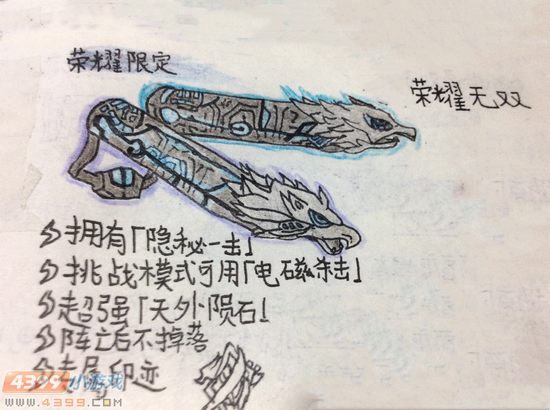 荣耀限定
荣耀无双
拥有「隐秘一击」
挑战模式可用「电磁杀击」
超强「天外陨石」
阵亡后不掉落
专属印迹
4399小游戏
www.4399.com